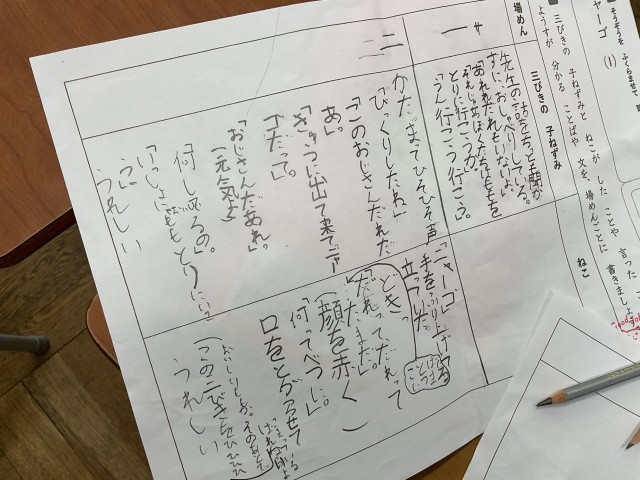 ャーゴ
(1)
そうぞうを ふくらませて
三びきの 子ねずみと ねこが した ことや 言った
ようすが 分かる ことばや 文を、場めんごとに 書きましょ
場めん
三びきの 子ねずみ
ねこ
一
先生の話をちっとも聞か
ずに、おしゃべりしている。
「あれ、だれもいないよ。」
「それじゃあ、ぼくたちはももを
とりに行こうか。」
「うん、行こう行こう。」
二
かたまってひそひそ声
「びっくりしたね」
「このおじさんだれだ
あ。」
「きゅうに出て来てニャー
「だって。」
「おじさんだあれ。」
(元気よく)
何してるの。」
「いっしょにももとりにいこ
う」
うれしい
「ニャーゴ」
手をふり上げて
立っ
どきっ
「だれってだれって
「たまだ。」
(顔を赤く)
「何ってべつに。」
口をとがらせて
うれしい
(この三びきをひひひひ